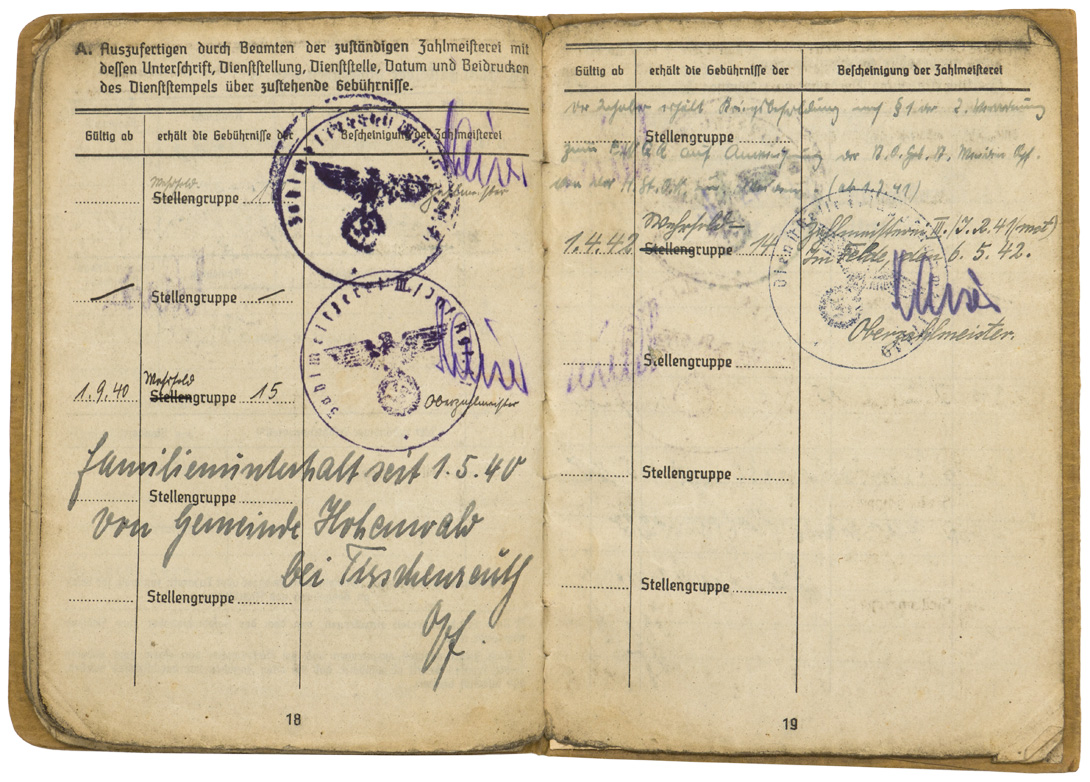 A. Auszufertigen durch Beamten der zuständigen Zahlmeisterei mit
dessen Unterschrift, Dienststellung, Dienststelle, Datum und Beidrucken
des Dienststempels über zustehende Gebührnisse.
Gültig ab erhält die Gebührnisse der Bescheinigung der Zahlmeisterei
Wehrsold
Stellengruppe
Zahlmeister
Stellengruppe
Zahlmeisterei III/
Wehrsold
1.9.40 Stellengruppe 15
Oberzahlmeister
Familienunterhalt seit 1.5.40
Stellengruppe
von Gemeinde Hohenwald
bei Tirschenreuth
Stellengruppe
Opf.
18
Gültig ab erhält die Gebührnisse der Bescheinigung der Zahlmeisterei
Der Inhaber erhält Kriegsbesoldung nach § 1 der 2. Verordnung
Stellengruppe
zum auf Anweisung der Weiden Opf.
Weiden (ab 1.7.41)
Wehrsold Zahlmeisterei III./I.R.41 (mot)
1.4.42 Stellengruppe 14 Im Felde, den 6.5.42.
Oberzahlmeister.
Stellengruppe
Stellengruppe
Stellengruppe
19